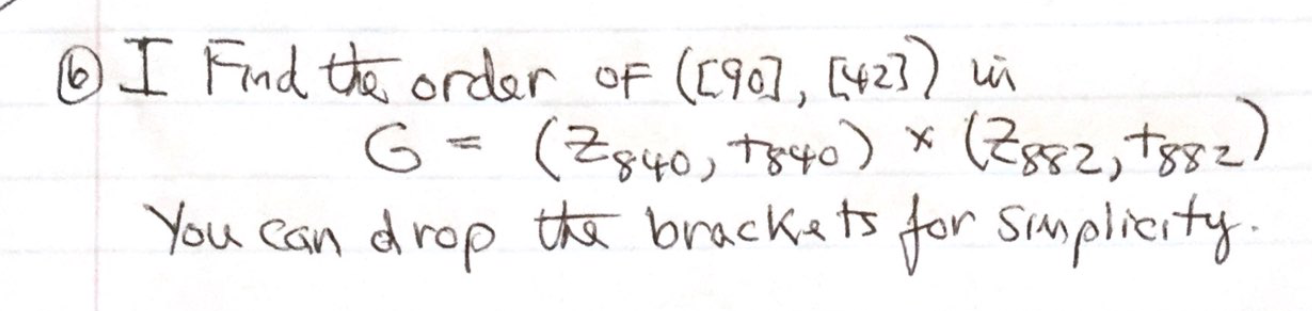 ⑥ I Find the order of ([90], [42]) in
G = (Z₈₄₀, +₈₄₀) × (Z₈₈₂, +₈₈₂)
You can drop the brackets for simplicity.